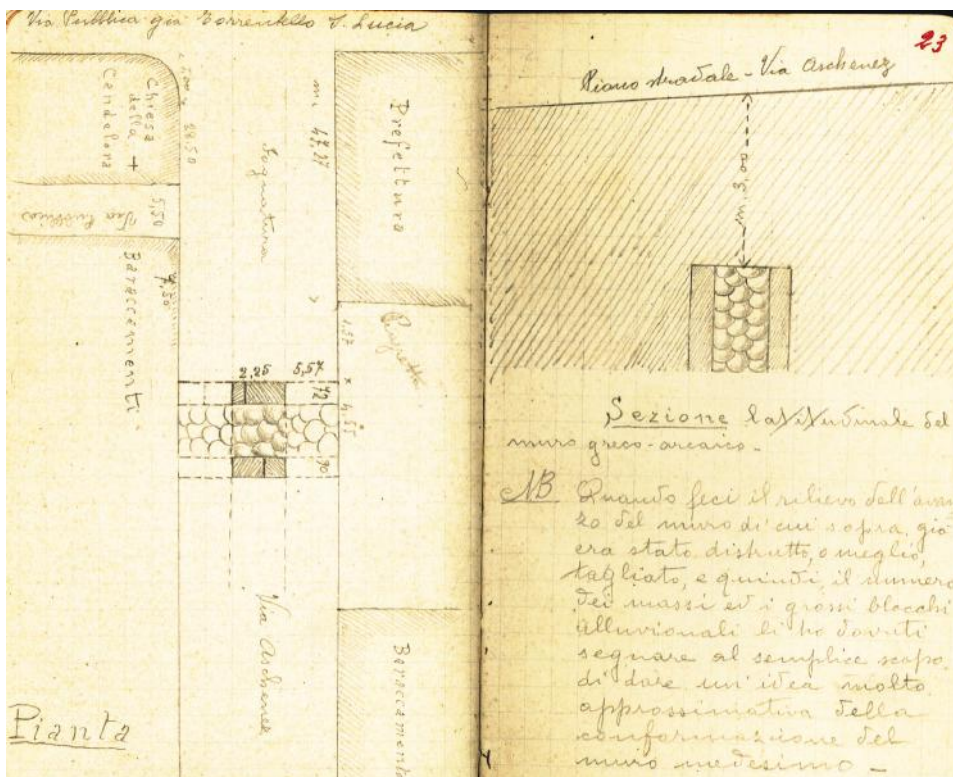 Via Pubblica già Torrentello S. Lucia
Chiesa
della +
Candelora
28.50
5,50
Via Pubblica
7,50
Baraccamenti
Fognatura
m. 43,27
Prefettura
1.57
2,25
5,57
72
4,55
90
Via Aschenez
Baraccamenti
Pianta
23
Piano stradale - Via Aschenez
m. 3,00
Sezione latitudinale del
muro greco-arcaico -
NB Quando feci il rilievo dell'avan
zo del muro di cui sopra, già
era stato distrutto, o meglio,
tagliato, e quindi, il numero
dei massi ed i grossi blocchi
alluvionali li ho dovuti
segnare al semplice scopo
di dare un'idea molto
approssimativa della
conformazione del
muro medesimo -